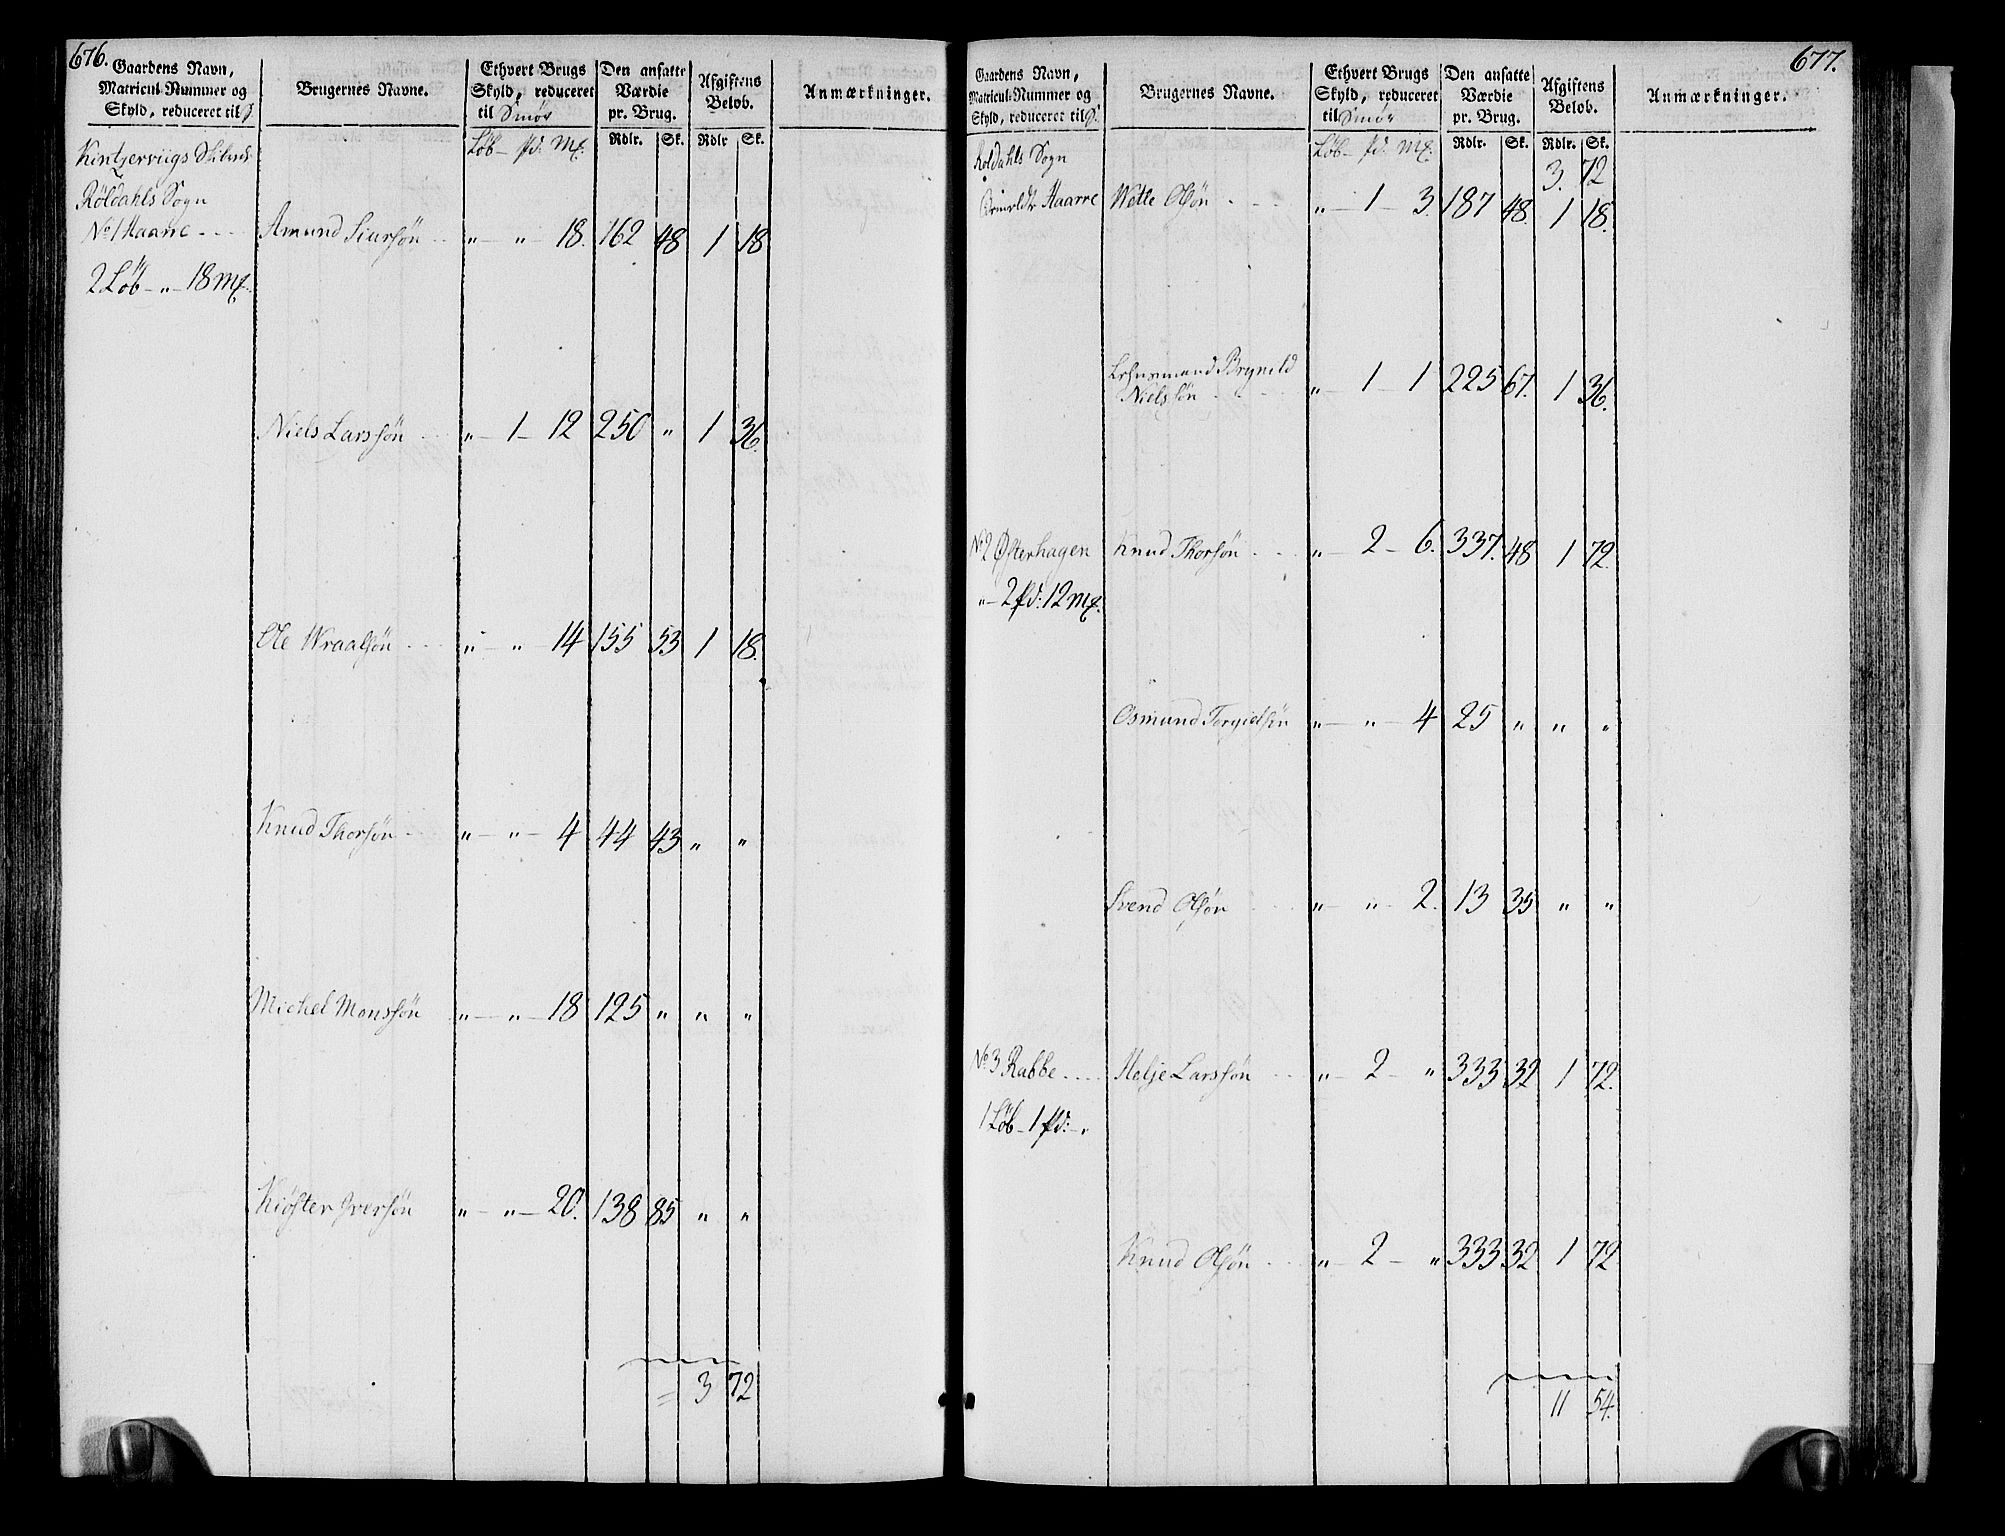 676.
Gaardens Navn,
Matricul-Nummer og
Skyld, reduceret til
Brugernes Navne.
Ethvert Brugs
Skyld, reduceret
til Smör
Den ansatte
Værdie
pr. Brug.
Afgiftens
Beløb.
Anmærkninger.
Löb – pd: Mk:
Rdlr. Sk. Rdlr Sk.
Kintzerviigs Skibrede
Röldahls Sogn
No 1 Haarre - - - Amund Siursön - - „ – „ – 18. 162 48 1 18
2 Löb – „ – 18 Mk.
Niels Larssön - - - „ – 1 – 12 250 „ 1 36.
Ole Wraalsön - - - „ – „ – 14 155 53 1 18.
Knud Thorsön - - „ – „ – 4 44 43 „ „
Michel Monssön „ – „ – 18 125 „ „ „
Kiöster Iversön „ – „ – 20. 138 85 „ „
= 3 72
677.
Gaardens Navn,
Matricul-Nummer og
Skyld, reduceret til
Brugernes Navne.
Ethvert Brugs
Skyld, reduceret
til Smör
Den ansatte
Værdie
pr. Brug.
Afgiftens
Beløb.
Anmærkninger.
Löb – pd: Mk:
Rdlr. Sk. Rdlr. Sk.
Roldahls Sogn 3. 72
Haarre Wette Olsön - - - „ – 1 – 3. 187 48. 1 18.
Lehnsmand Brynild
Nielssön - - - „ – 1 – 1 225 67. 1 36.
No 2 Østerhagen Knud Thorsön - - - „ – 2 – 6. 337. 48 1 72.
„ – 2 pd: 12 Mk.
Osmund Torgielsön „ – „ – 4 25 „ „ „
Svend Olsön - - - „ – „ – 2. 13 35 „ „
No 3 Rabbe - - - - Helje Larssön - - „ – 2 – „ 333 32 1 72.
1 Löb – 1 pd: – „
Knud Olsön - - - „ – 2 – „ 333 32 1 72
11 54.